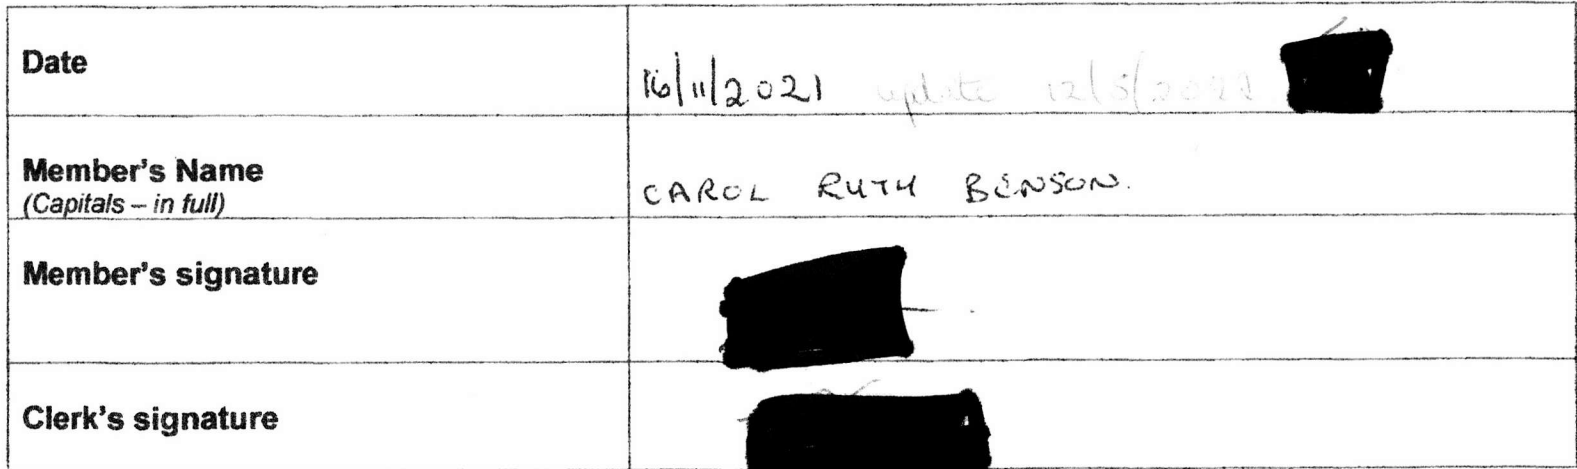 Date
16/11/2021 update 12/5/2022
Member's Name
(Capitals – in full)
CAROL RUTH BENSON.
Member's signature
Clerk's signature